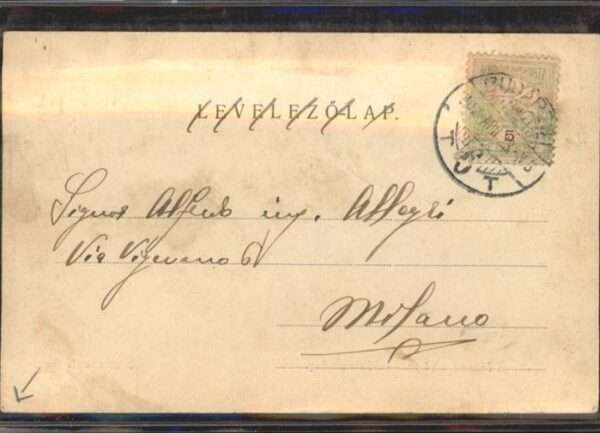 LEVELEZŐLAP.
5
Signor Alfredo ing. Allegri
Via Vignano 6
Milano